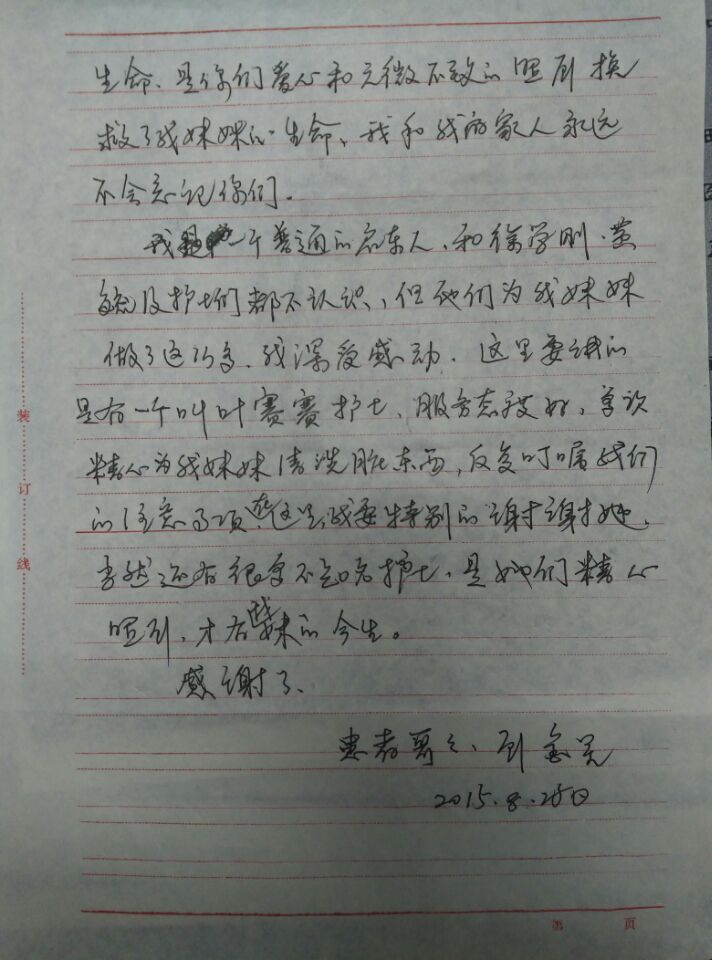 生命、是你们爱心和无微不致的照顾换
救了我妹妹的生命、我和我的家人永远
不会忘记你们。
我是一个普通的启东人、和徐学刚、黄
及护士们都不认识、但他们为我妹妹
做了这巧多、我深受感动. 这里要说的
是有一个叫叶赛赛护士、服务态度好,
精心为我妹妹清洗脏东西,反复叮嘱我们
的注意事项,在这里我要特别的谢谢她、
当然还有很多不知名护士、是她们精心
照顾、才有我妹的今生。
感谢了、
患者哥哥、
2015.8.25日
装
订
线
第 页